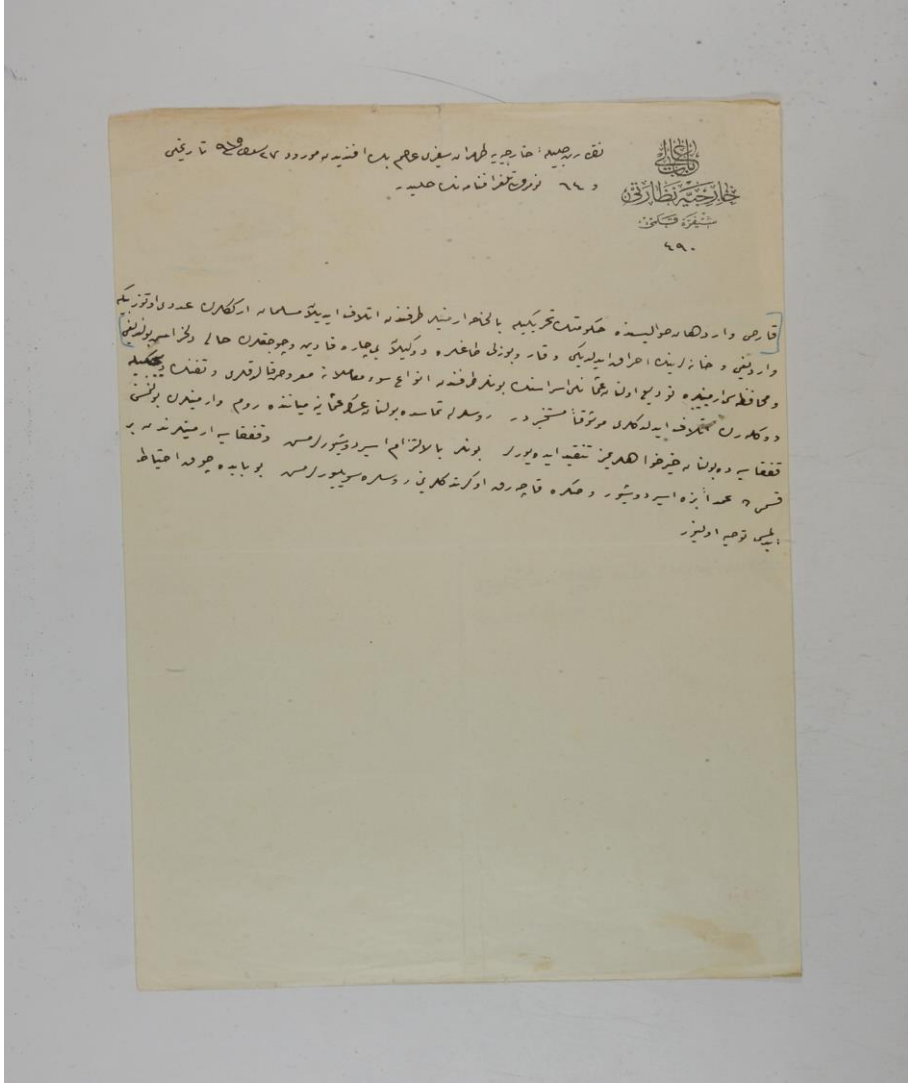 باب عالی
خارجیه نظارتی
شیفره قلمی
٤٩٠
نظارت جلیلهٔ خارجیه یه طهران سفیری عاصم بك افندیدن مورود ٢٧ تاریخلی
و ٦٤ نومرولی تلغرافنامه نك حلیدر
قارص واردهان حوالیسنده حکومتك تحریکیله بالخاصه ارمنیلر طرفندن اتلاف ایدیلن مسلمان ارککلرك عددی اوتوز بیكه
واردیغی و خانه لرینك احراق ایدلدیکی وقار وبوزلی طاغلره دوکیلن بیچاره قادین وچوجقلرك حالی دلخراش بولندیغی
ومحافظه سی ارمنیلره تودیع اولنان عثمانلی اسراسنك بونلر طرفندن انواع سوء معاملاته معروض قالدقلری و
اتلاف ایدلدکلری موثوقاً مستخبردر روسلرله تماسده بولنان عساکر عثمانیه میاننده روم وارمنیلرك بولنمسنی
قفقاسیه ده بولنان خیرخواهلریمز تنقید ایدییورلر بونلر بالالتزام اسیر دوشیورلرمش وقفقاسیه ارمنیلرندن بر
قسمی ده عمداً بزه اسیر دوشیور وصکره قاچه رق اوکرندکلرینی روسلره سویلیورلرمش بوبابده چوق احتیاط
ایدلمسی توصیه اولنیور